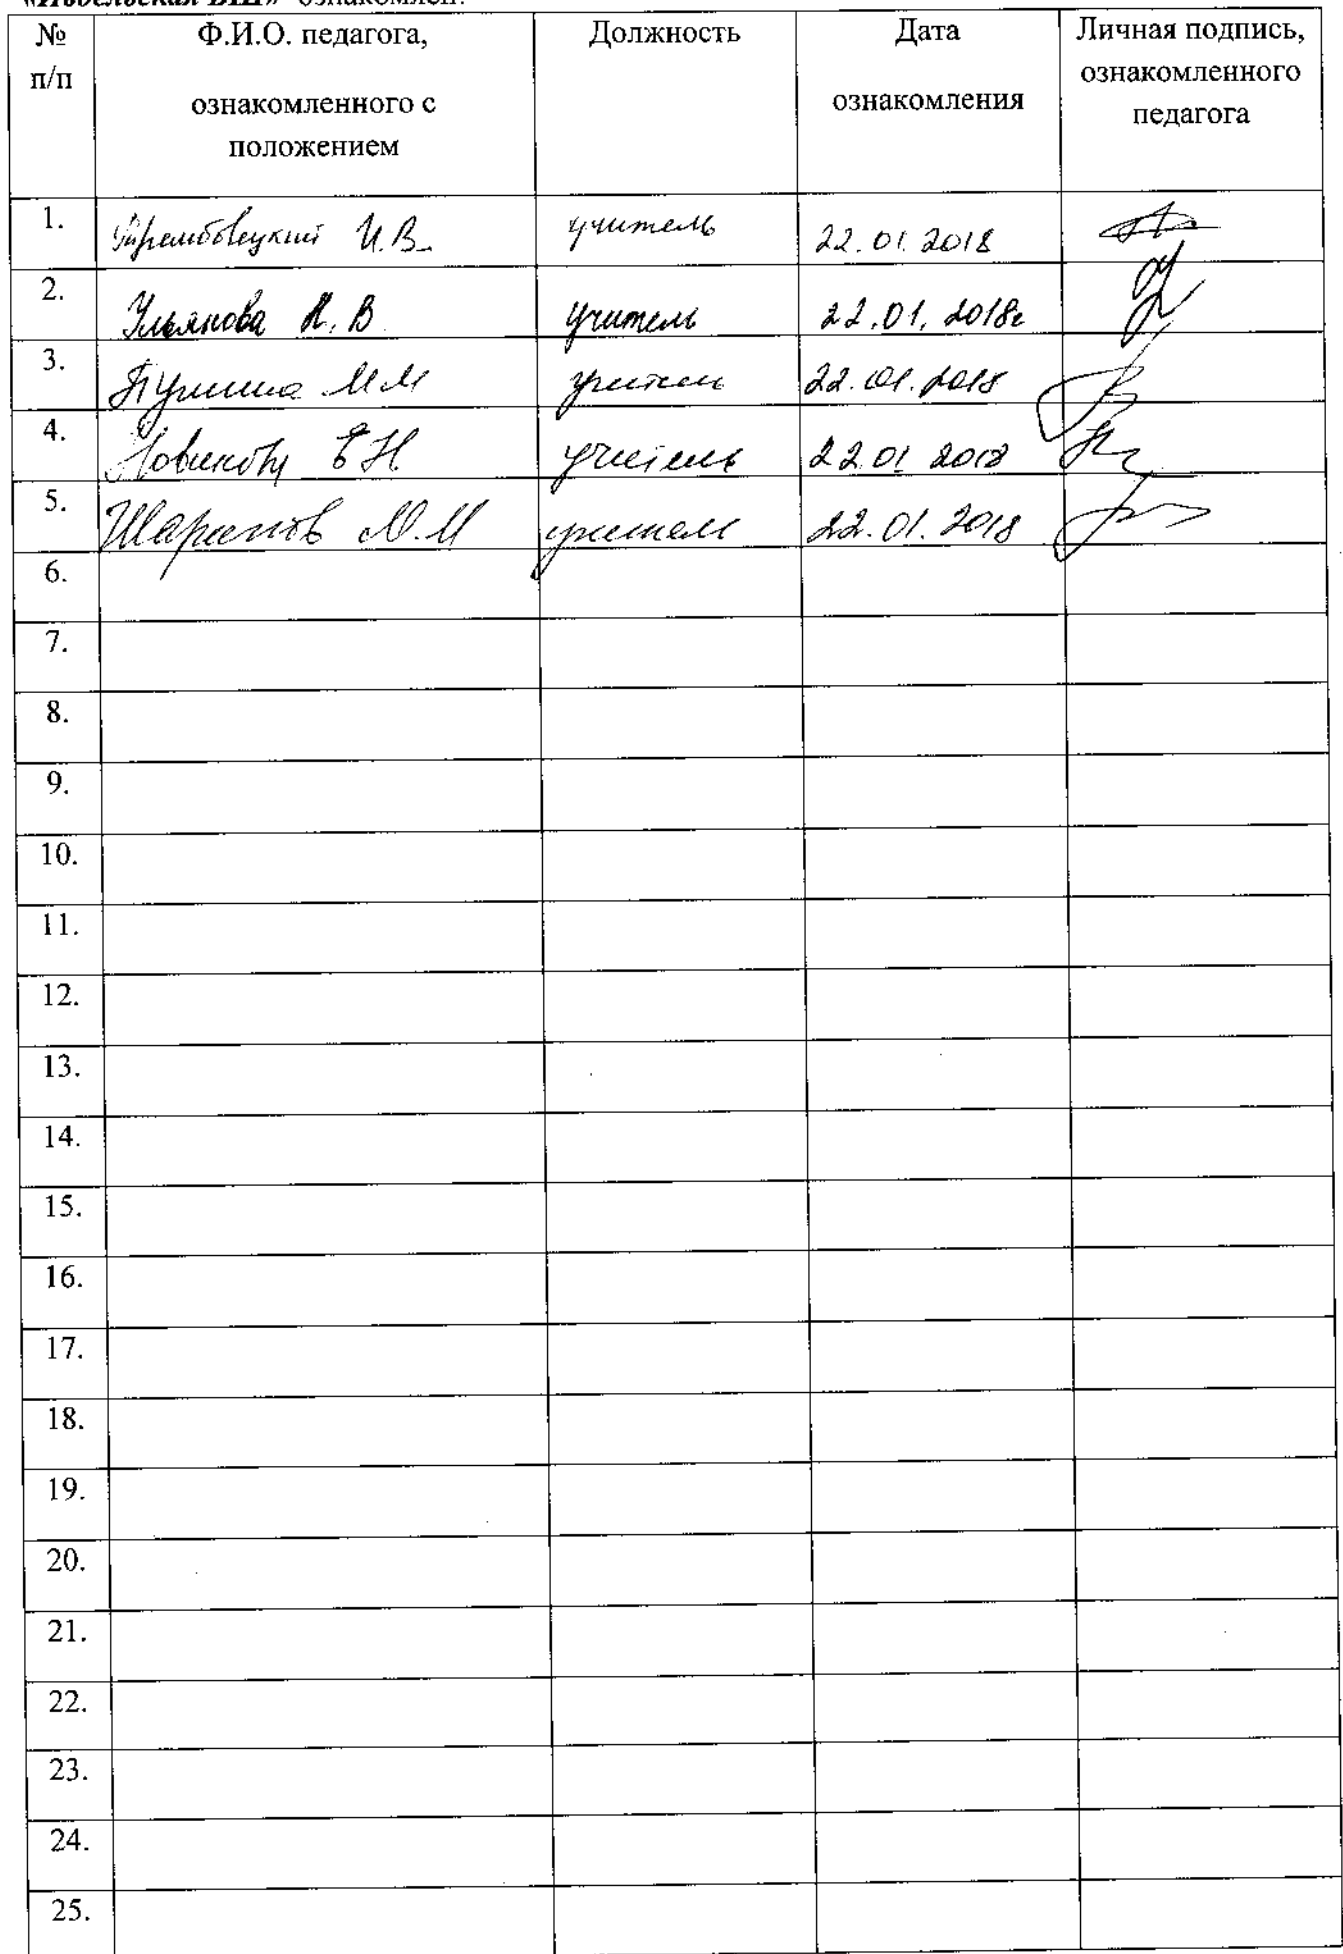 ознакомлен:
№ п/п Ф.И.О. педагога, ознакомленного с положением Должность Дата ознакомления Личная подпись, ознакомленного педагога
1. И.В. учитель 22.01.2018
2. Ульянова Н. В учитель 22.01.2018г
3. М М учитель 22.01.2018
4. Е Н учитель 22 01 2018
5. Шарипов М.М учитель 22.01.2018
6.
7.
8.
9.
10.
11.
12.
13.
14.
15.
16.
17.
18.
19.
20.
21.
22.
23.
24.
25.